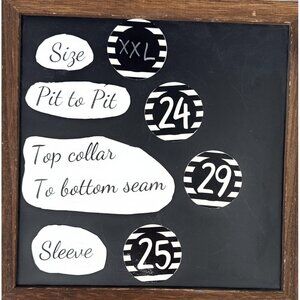 Size XXL
Pit to Pit 24
Top collar
To bottom seam 29
Sleeve 25